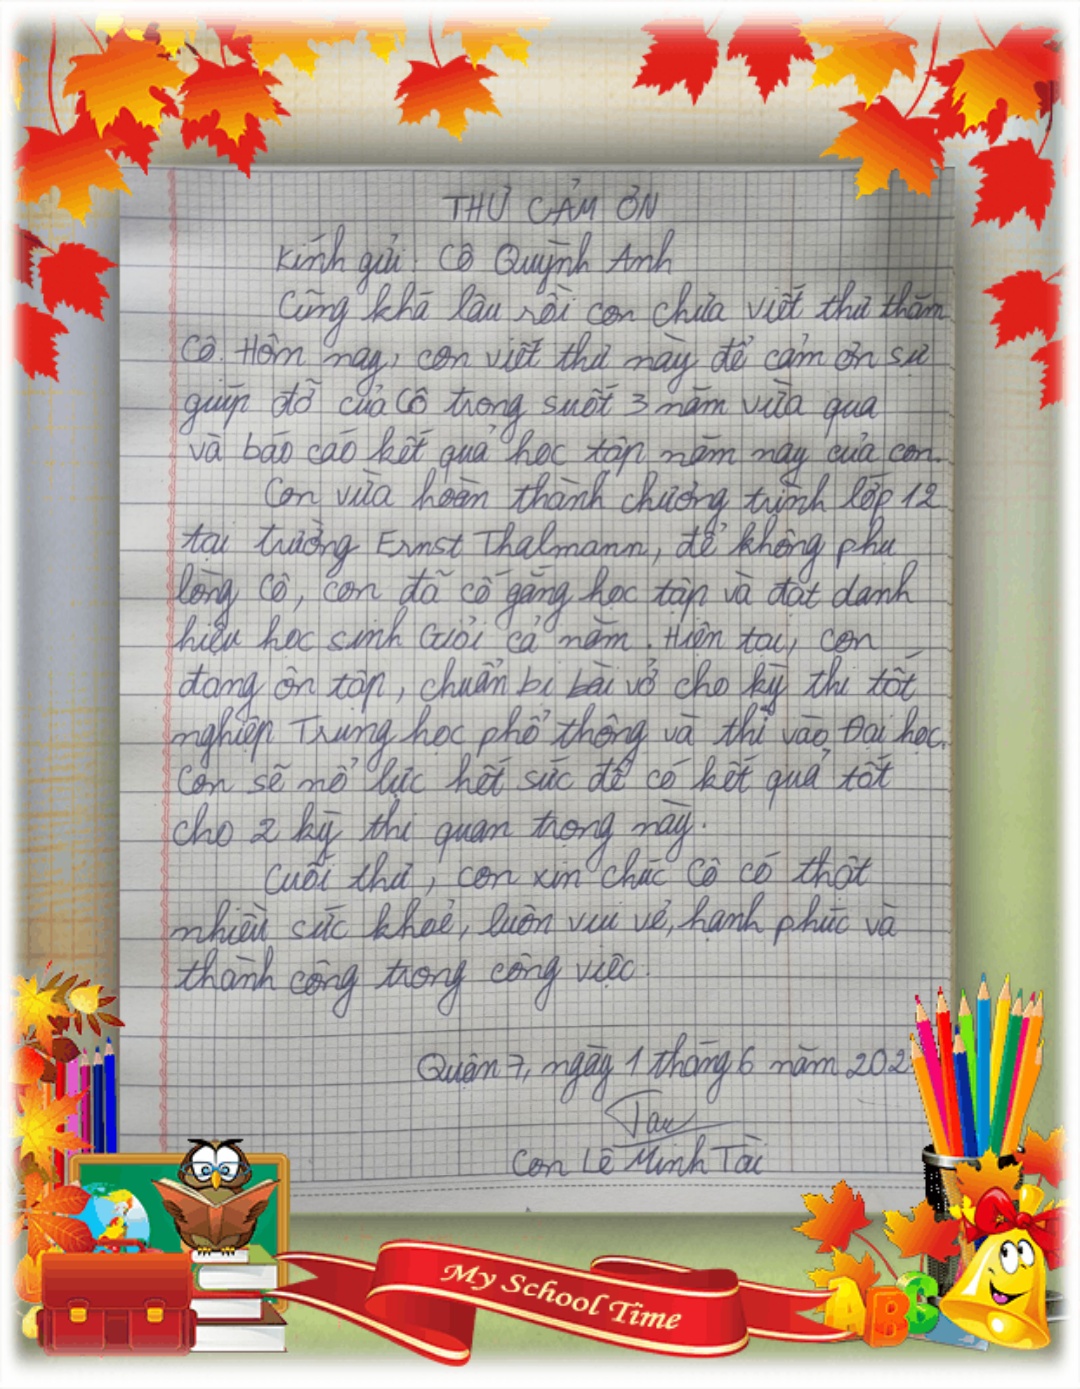 THƯ CẢM ƠN
Kính gửi: Cô Quỳnh Anh
Cũng khá lâu rồi con chưa viết thư thăm
Cô. Hôm nay, con viết thư này để cảm ơn sự
giúp đỡ của Cô trong suốt 3 năm vừa qua
và báo cáo kết quả học tập năm nay của con.
Con vừa hoàn thành chương trình lớp 12
tại trường Ernst Thalmann, để không phụ
lòng Cô, con đã cố gắng học tập và đạt danh
hiệu học sinh Giỏi cả năm. Hiện tại, con
đang ôn tập, chuẩn bị bài vở cho kỳ thi tốt
nghiệp Trung học phổ thông và thi vào Đại học.
Con sẽ nổ lực hết sức để có kết quả tốt
cho 2 kỳ thi quan trọng này.
Cuối thư, con xin chúc Cô có thật
nhiều sức khoẻ, luôn vui vẻ, hạnh phúc và
thành công trong công việc.
Quận 7, ngày 1 tháng 6 năm 202
Tai
Con Lê Minh Tài
My School Time
ABC